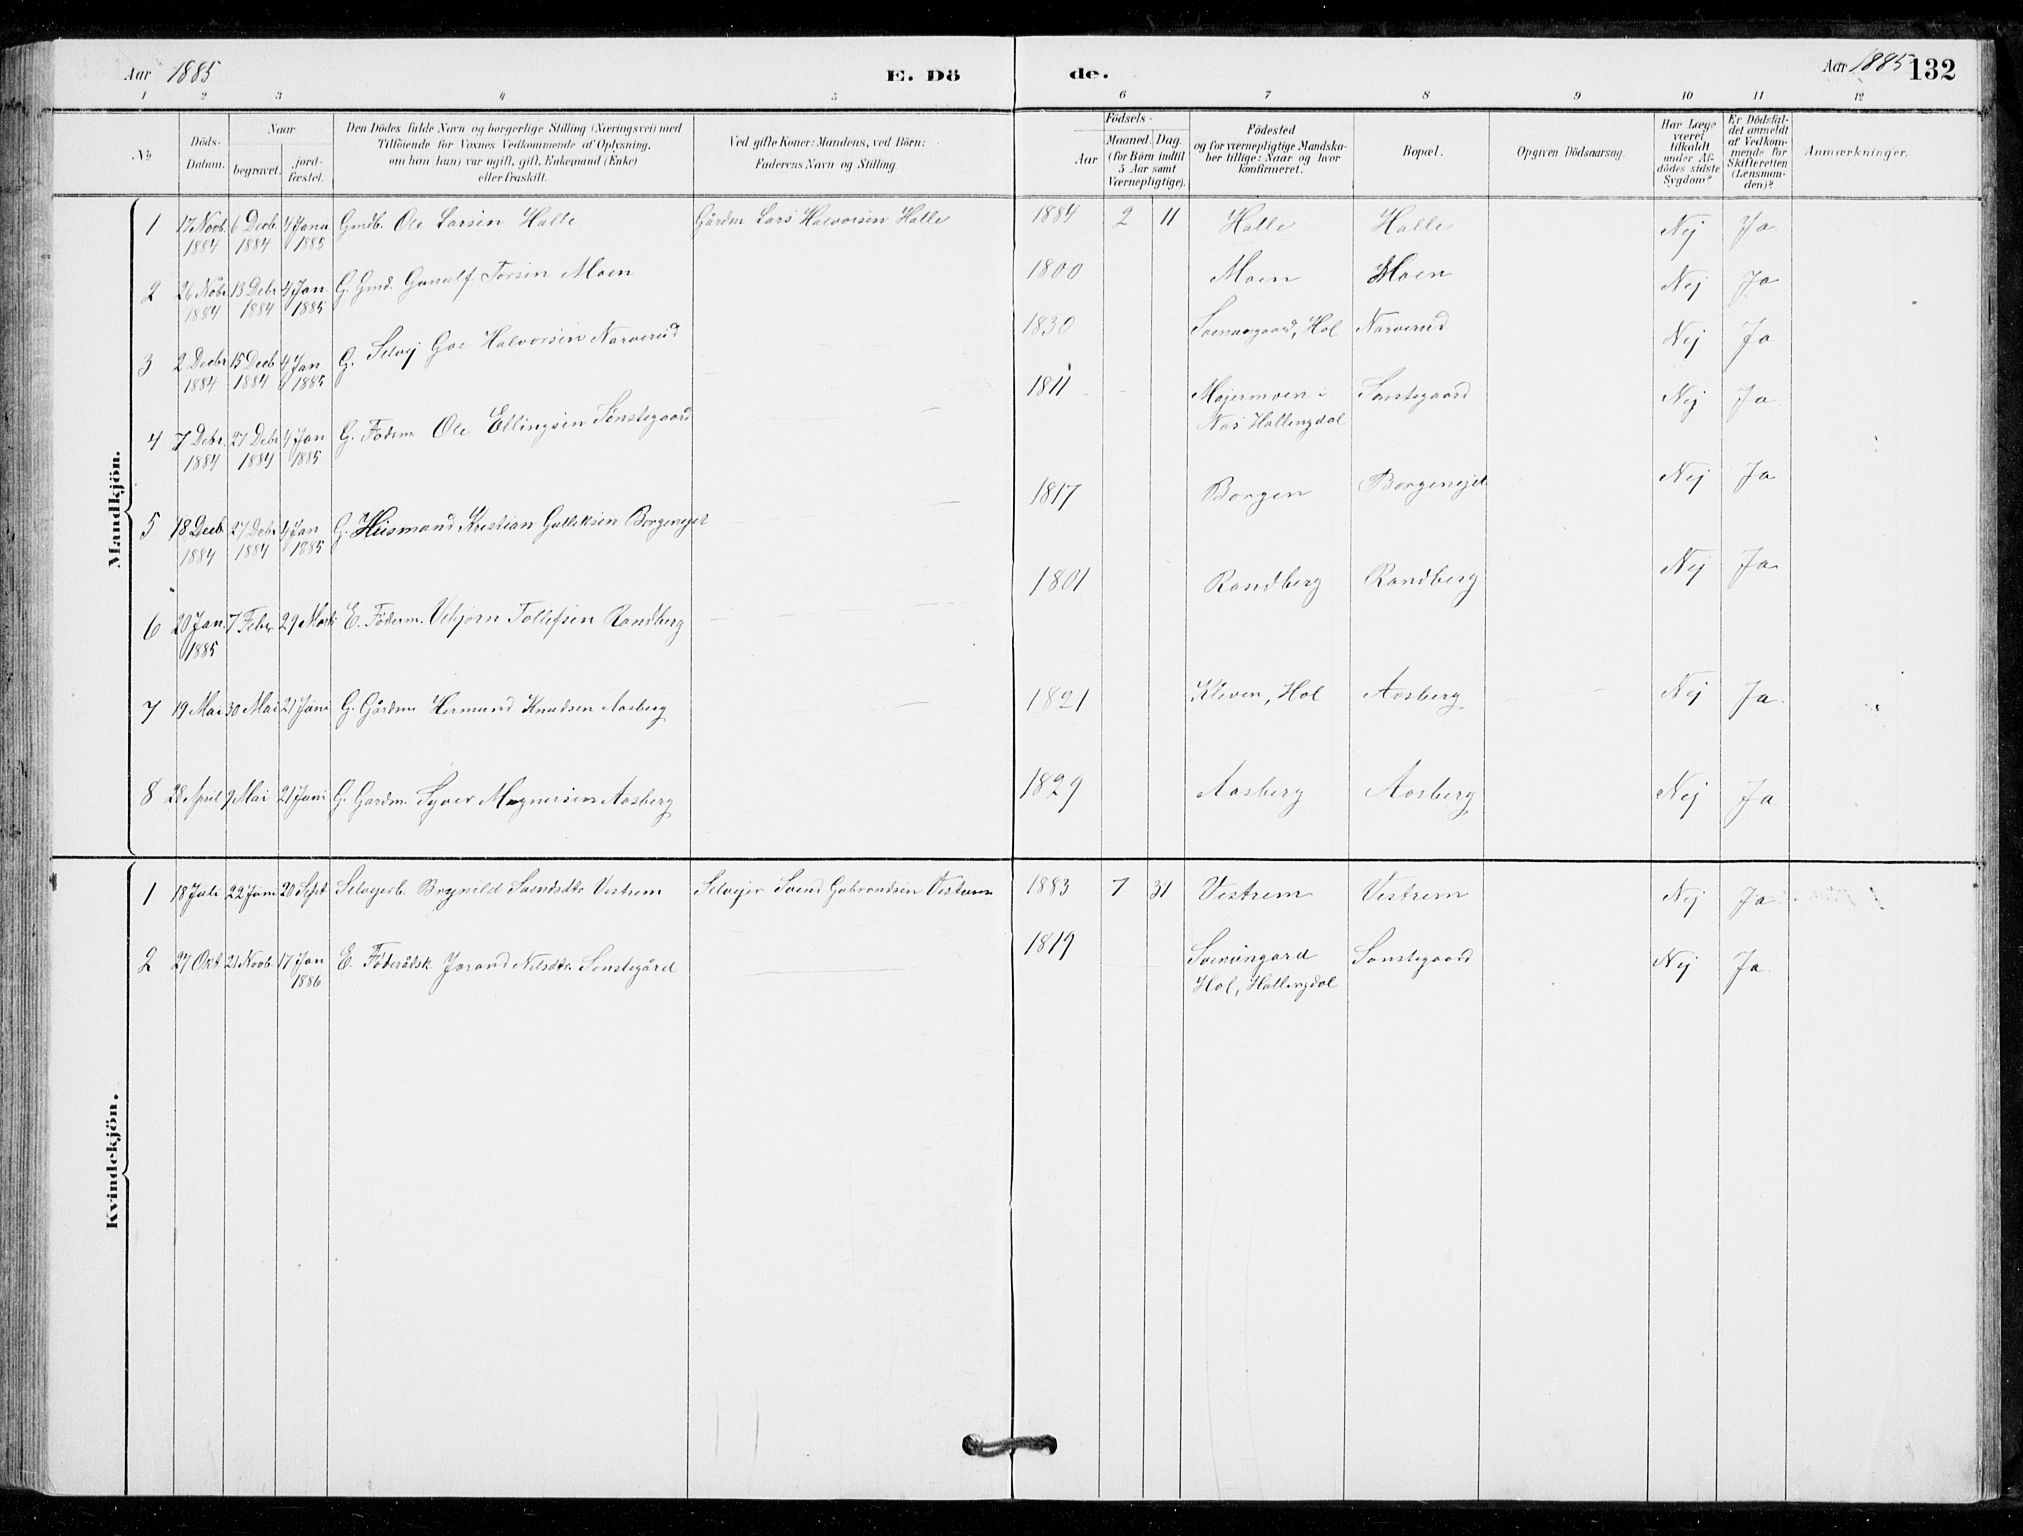 Aar 1885 E. Dö de. Aar 1885 132
1 2 3 4 5 6 7 8 9 10 11 12
№
Döds-
Datum.
Naar
begravet.
jord-
fæstet.
Den Dödes fulde Navn og borgerlige Stilling (Næringsvei) med
Tilföiende for Voxnes Vedkommende af Oplysning,
om han (hun) var ugift, gift, Enkemand (Enke)
eller fraskilt.
Ved gifte Koner: Mandens, ved Börn:
Faderens Navn og Stilling.
Födsels-
Aar
Maaned. Dag.
(for Börn indtil
5 Aar samt
Værnepligtige).
Födested
og for værnepligtige Mandska-
ber tillige: Naar og hvor
konfirmeret.
Bopæl.
Opgiven Dödsaarsag.
Har Læge
været
tilkaldt
under Af-
dödes sidste
Sygdom?
Er Dödsfal-
det anmeldt
af Vedkom-
mende for
Skifteretten
(Lensman-
den)?
Anmærkninger.
Mandkjön.
1 17 Novb. 6 Decb. 4 Janu Gmdb. Ole Larsen Halle Gårdm Lars Halvorsen Halle 1884 2 11 Halle Halle Nej Ja
1884 1884 1885
2 26 Nobr 13 Debr 4 Jan G. Gmd. Gunulf Torsen Moen 1800 Moen Moen Nej Ja
1884 1884 1885
3 2 Decbr 15 Decb 4 Jan G. Selvej Goe Halvorsen Narverud 1830 Hol Narverud Nej Ja
1884 1884 1885
4 7 Debr. 27 Debr 4 Jan G. Föderm Ole Ellingsen Sönstegaard 1811 Mojermoen i Sonstegaard Nej Ja
1884 1884 1885 Nes Hallingdal
5 18 Decb 27 Debr 4 Jan G. Husmand Kristian Gulleksen Borgenejet 1817 Borgen Borgenejet Nej Ja
1884 1884 1885
6 20 Jan. 7 Febr 29 Marts E. Föderm. Vebjörn Tollefsen Randberg 1801 Randberg Randberg Nej Ja
1885
7 19 Mai 30 Mai 21 Juni G. Gårdm Hermund Knudsen Aasberg 1821 Kleven, Hol Aasberg Nej Ja.
8 28 April 9 Mai 21 Juni G. Gardm. Syver Magnersen Aasberg 1829 Aasberg Aasberg Nej Ja
Kvindekjön.
1 18 Juli 22 Juni 20 Sept Selvejerb. Brynild Svendsdtr Vestrem Selvejer Svend Gubrandsen Vestrem 1883 7 31 Vestrem Vestrem Nej Ja
2 27 Okt 21 Novb 17 Jan E. Föderådsk. Jorand Nilsdtr. Sonstegård 1819 Sonstegaard Nej Ja.
1886 Hol, Hallingdal